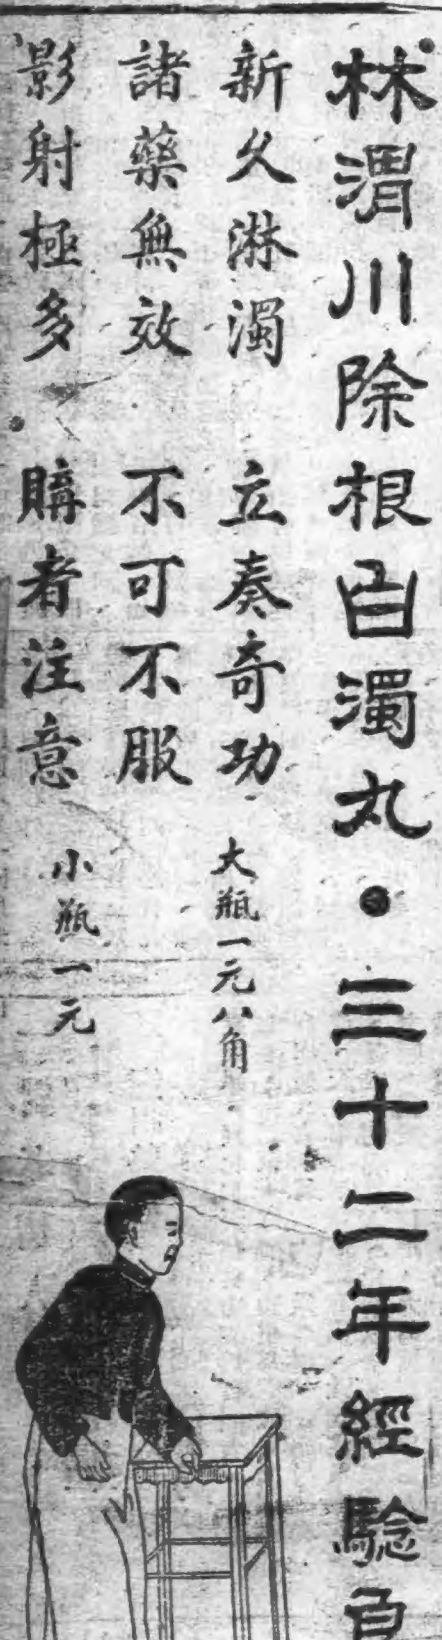 林渭川除根白濁丸•三十二年經驗
新久淋濁 立奏奇功 大瓶一元八角
諸藥無效 不可不服
影射極多 購者注意 小瓶一元